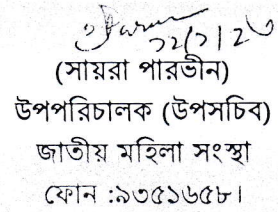 (সায়রা পারভীন)
উপপরিচালক (উপসচিব)
জাতীয় মহিলা সংস্থা
ফোন :৯৩৫১৬৫৮।